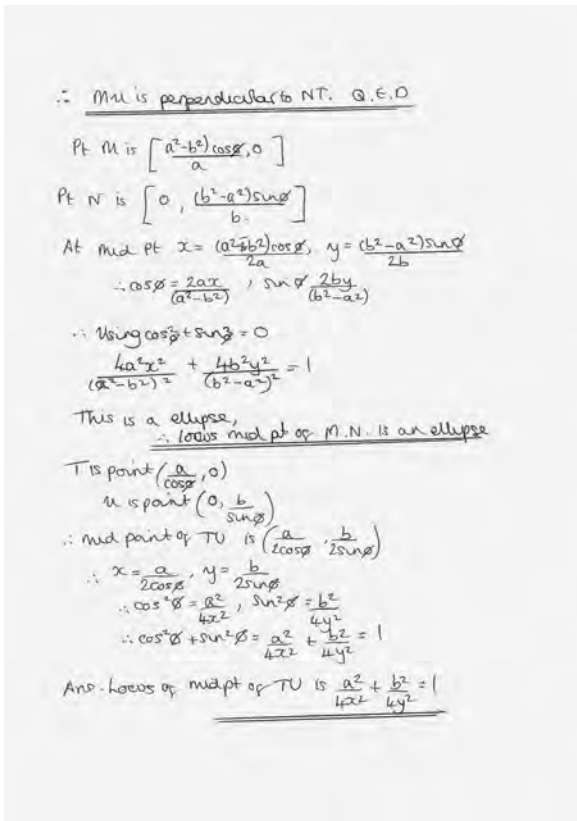 ∴ MU is perpendicular to NT. Q.E.D
Pt M is [a²-b²)cosø/a, 0]
Pt N is [0, (b²-a²)sinø/b.]
At mid pt x = (a²-b²)cosø/2a, y = (b²-a²)sinø/2b
∴ cosø = 2ax/(a²-b²), sin ø 2by/(b²-a²)
∴ Using cos²ø + sin²ø = 0
4a²x²/(a²-b²)² + 4b²y²/(b²-a²)² = 1
This is a ellipse,
∴ locus mid pt of M.N. is an ellipse
T is point (a/cosø, 0)
U is point (0, b/sinø)
∴ mid point of TU is (a/2cosø, b/2sinø)
∴ x = a/2cosø, y = b/2sinø
∴ cos²ø = a²/4x², sin²ø = b²/4y²
∴ cos²ø + sin²ø = a²/4x² + b²/4y² = 1
Ans. Locus of midpt of TU is a²/4x² + b²/4y² = 1